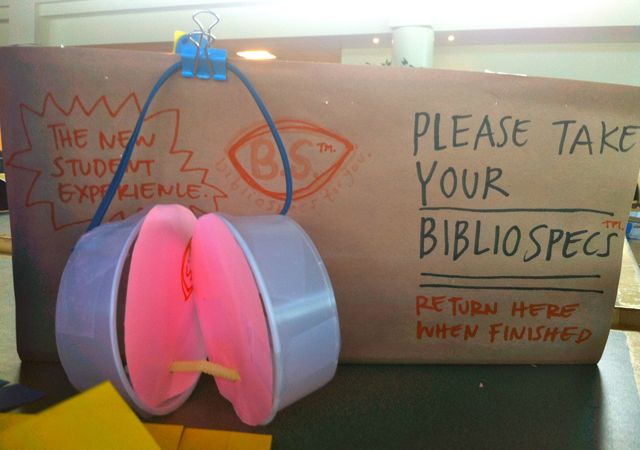 THE NEW
STUDENT
EXPERIENCE.
B.S.™.
bibliospecs for you.
PLEASE TAKE
YOUR
BIBLIOSPECS™
RETURN HERE
WHEN FINISHED